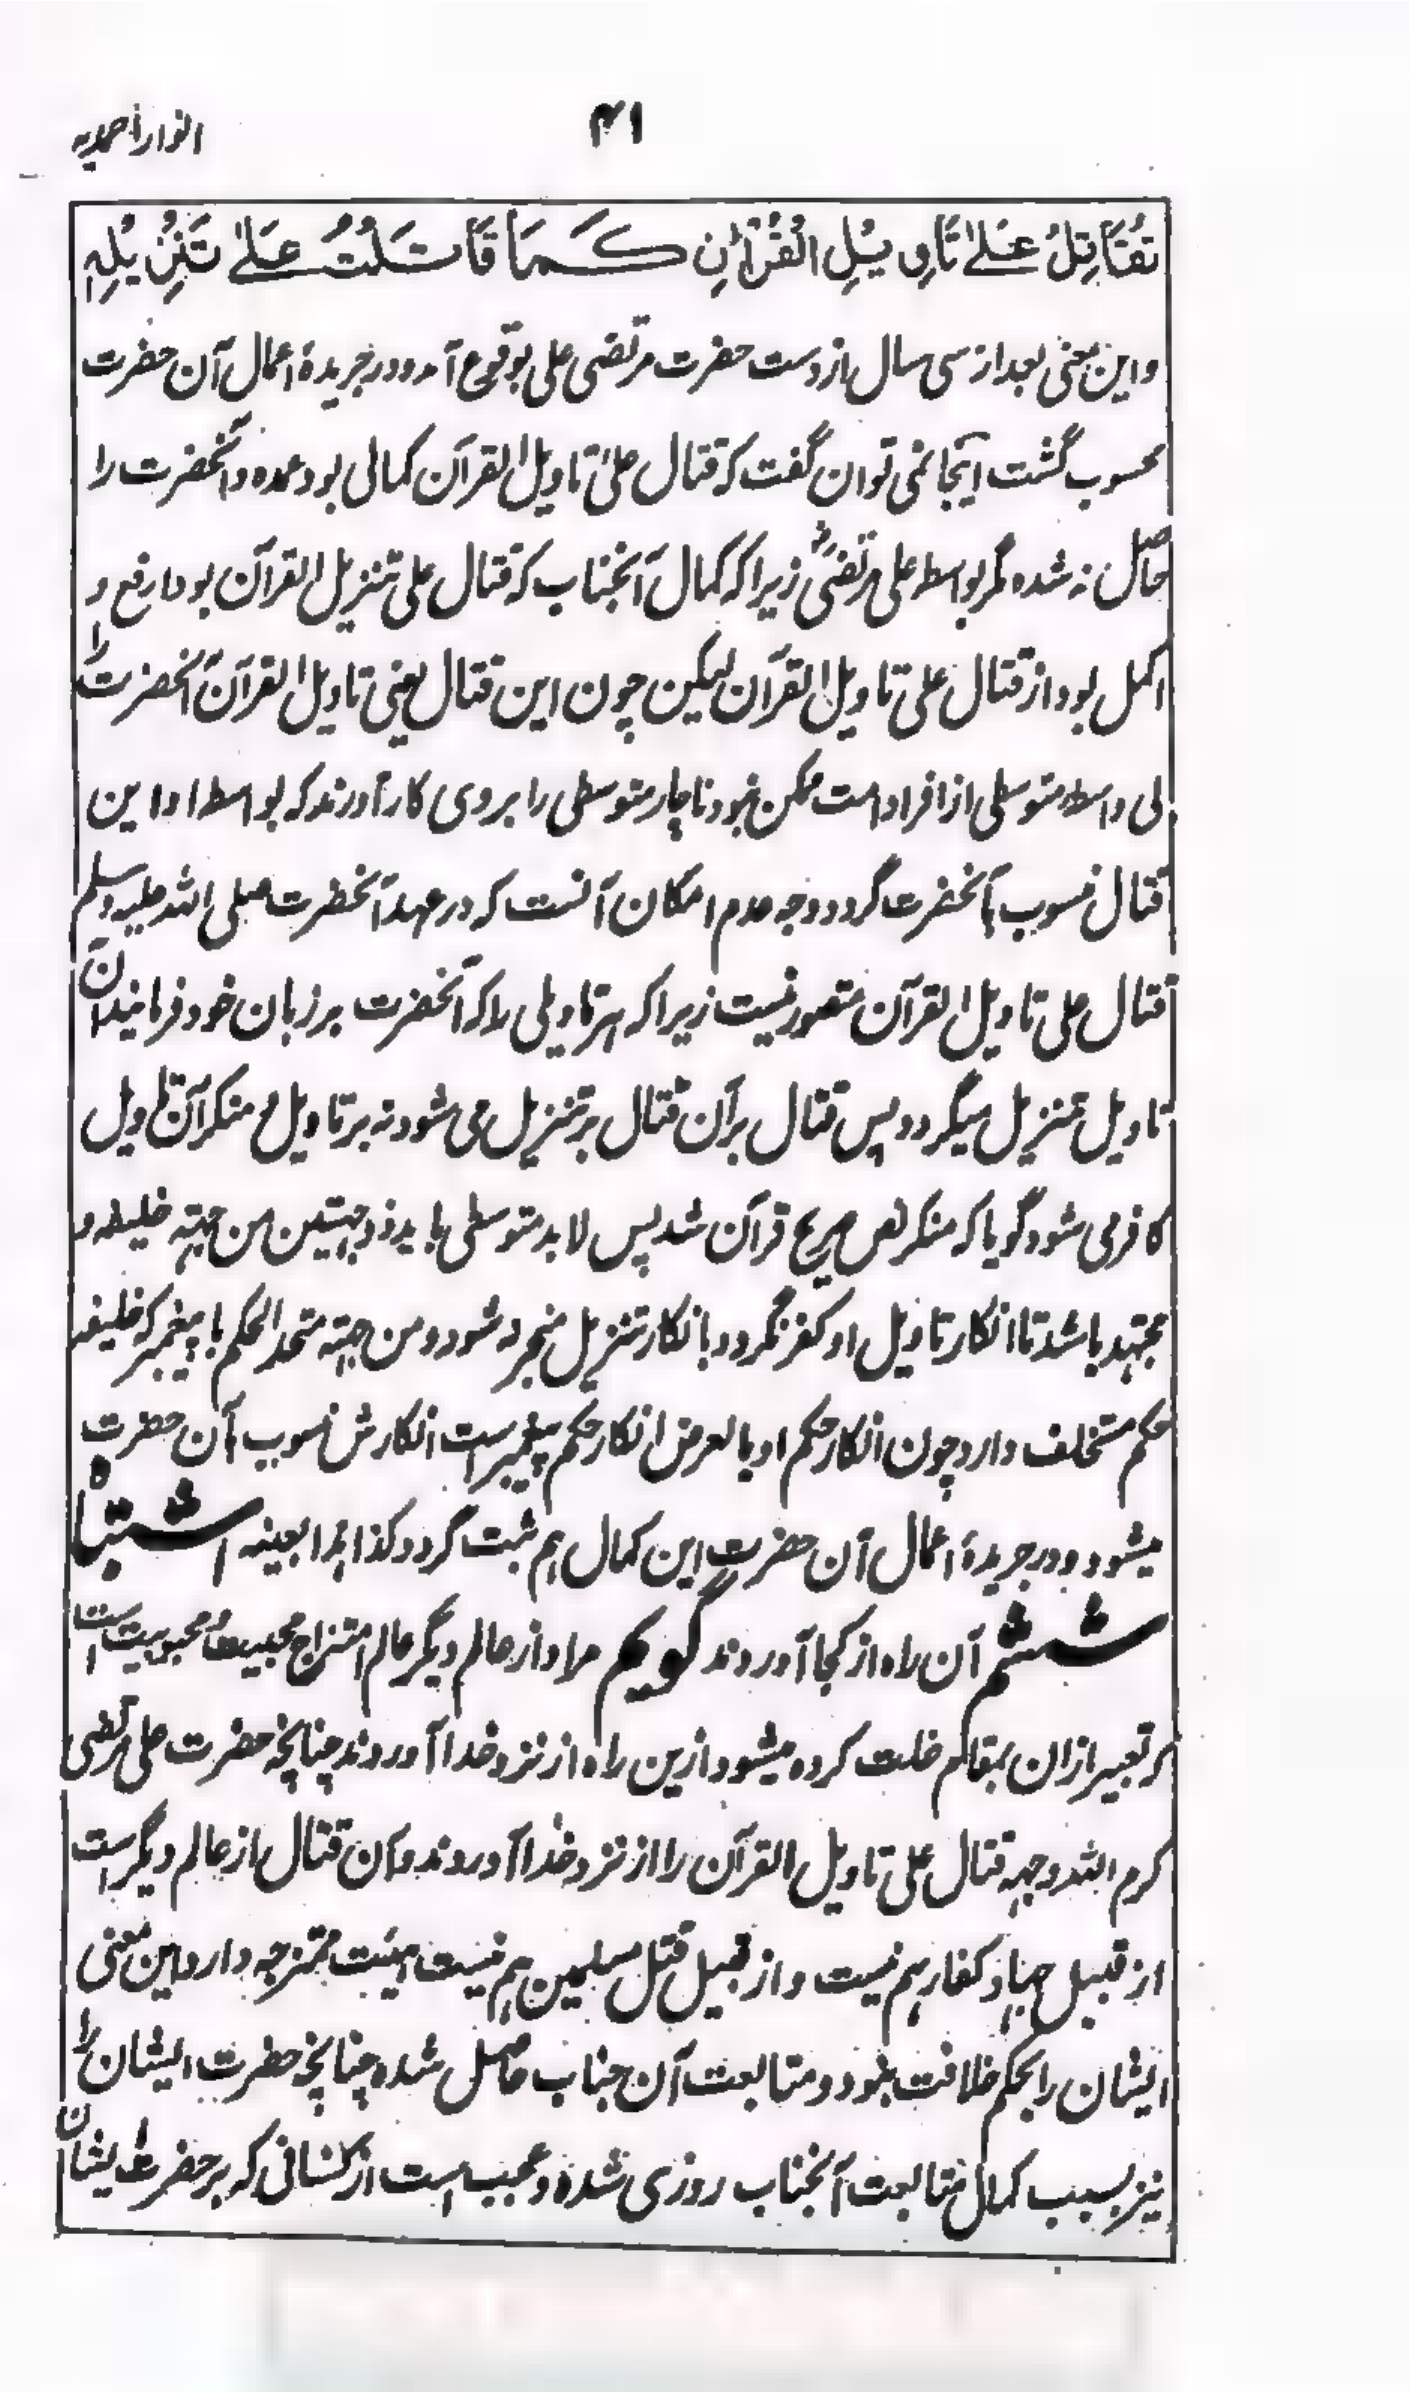 انوار احمدیہ
۴۱
تُقَاتِلُ عَلٰی تَاْوِیْلِ الْقُرْاٰنِ کَمَا قَاتَلْتُ عَلٰی تَنْزِیْلِہٖ
و این معنی بعد از سی سال از دست حضرت مرتضی علی بوقوع آمد و در جریدۂ اعمال آن حضرت
محسوب گشت اینجا نمی توان گفت کہ قتال علیٰ تاویل القرآن کمالی بود عمدہ و آنحضرت را
حاصل نہ شدہ مگر بواسطہ علی مرتضیٰؓ زیرا کہ کمال آنجناب کہ قتال علی تنزیل القرآن بود ارفع و
اکمل بود از قتال علی تاویل القرآن لیکن چون این قتال یعنی تاویل القرآن آنحضرت را
بی واسطہ متوسطی از افراد امت ممکن نبود ناچار متوسطی را بروی کار آوردند کہ بواسطہ او این
قتال منسوب بآنحضرت گردد و وجہ عدم امکان آنست کہ در عہد آنحضرت صلی اللہ علیہ وسلم
قتال علی تاویل القرآن متصور نیست زیرا کہ ہر تاویلی را کہ آنحضرت بر زبان خود فرمایند آن
تاویل تنزیل میگردد پس قتال بر آن قتال بر تنزیل می شود نہ بر تاویل و منکر آن تاویل
کافر می شود گویا کہ منکر نص صریح قرآن شد پس لابد متوسطی باید ذو جہتین من جہتہ خلیفہ و
مجتہد باشد تا انکار تاویل او کفر نگردد و بانکار تنزیل منجر نہ شود و من جہتہ متحد الحکم با پیغمبر کہ خلیفہ
حکم مستخلف دارد چون انکار حکم او بالعرض انکار حکم پیغمبر است انکارش منسوب بآن حضرت
میشود و در جریدۂ اعمال آن حضرت این کمال ہم ثبت گردد کذا ہذا بعینہ اشتباہ
ششم آن راہ از کجا آوردند گویم مراد از عالم دیگر عالم امتزاج محبیت و محبوبیت است
کہ تعبیر ازان بمقام خلت کردہ میشود ازین راہ از نزد خدا آوردند چنانچہ حضرت علی مرتضی
کرم اللہ وجہہ قتال علی تاویل القرآن را از نزد خدا آوردند و آن قتال از عالم دیگر است
از قبیل جہاد کفار ہم نیست و از قبیل قتل مسلمین ہم نیست ہیئت ممتزجہ دارد این معنی
ایشان را بحکم خلافت بنود و متابعت آن جناب حاصل شدہ چنانچہ حضرت ایشان را
نیز بسبب کمال متابعت آنجناب روزی شدہ و عجیب است از کسانی کہ بر حضرت ایشان